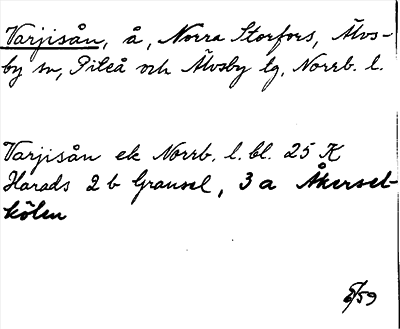 Varjisån, å, Norra Storfors, Älvs-
by sn, Piteå och Älvsby tg, Norrb. l.
Varjisån ek Norrb. l. bl. 25 K
Harads 2 b Gransel, 3 a Åkersel-
kölen
/59